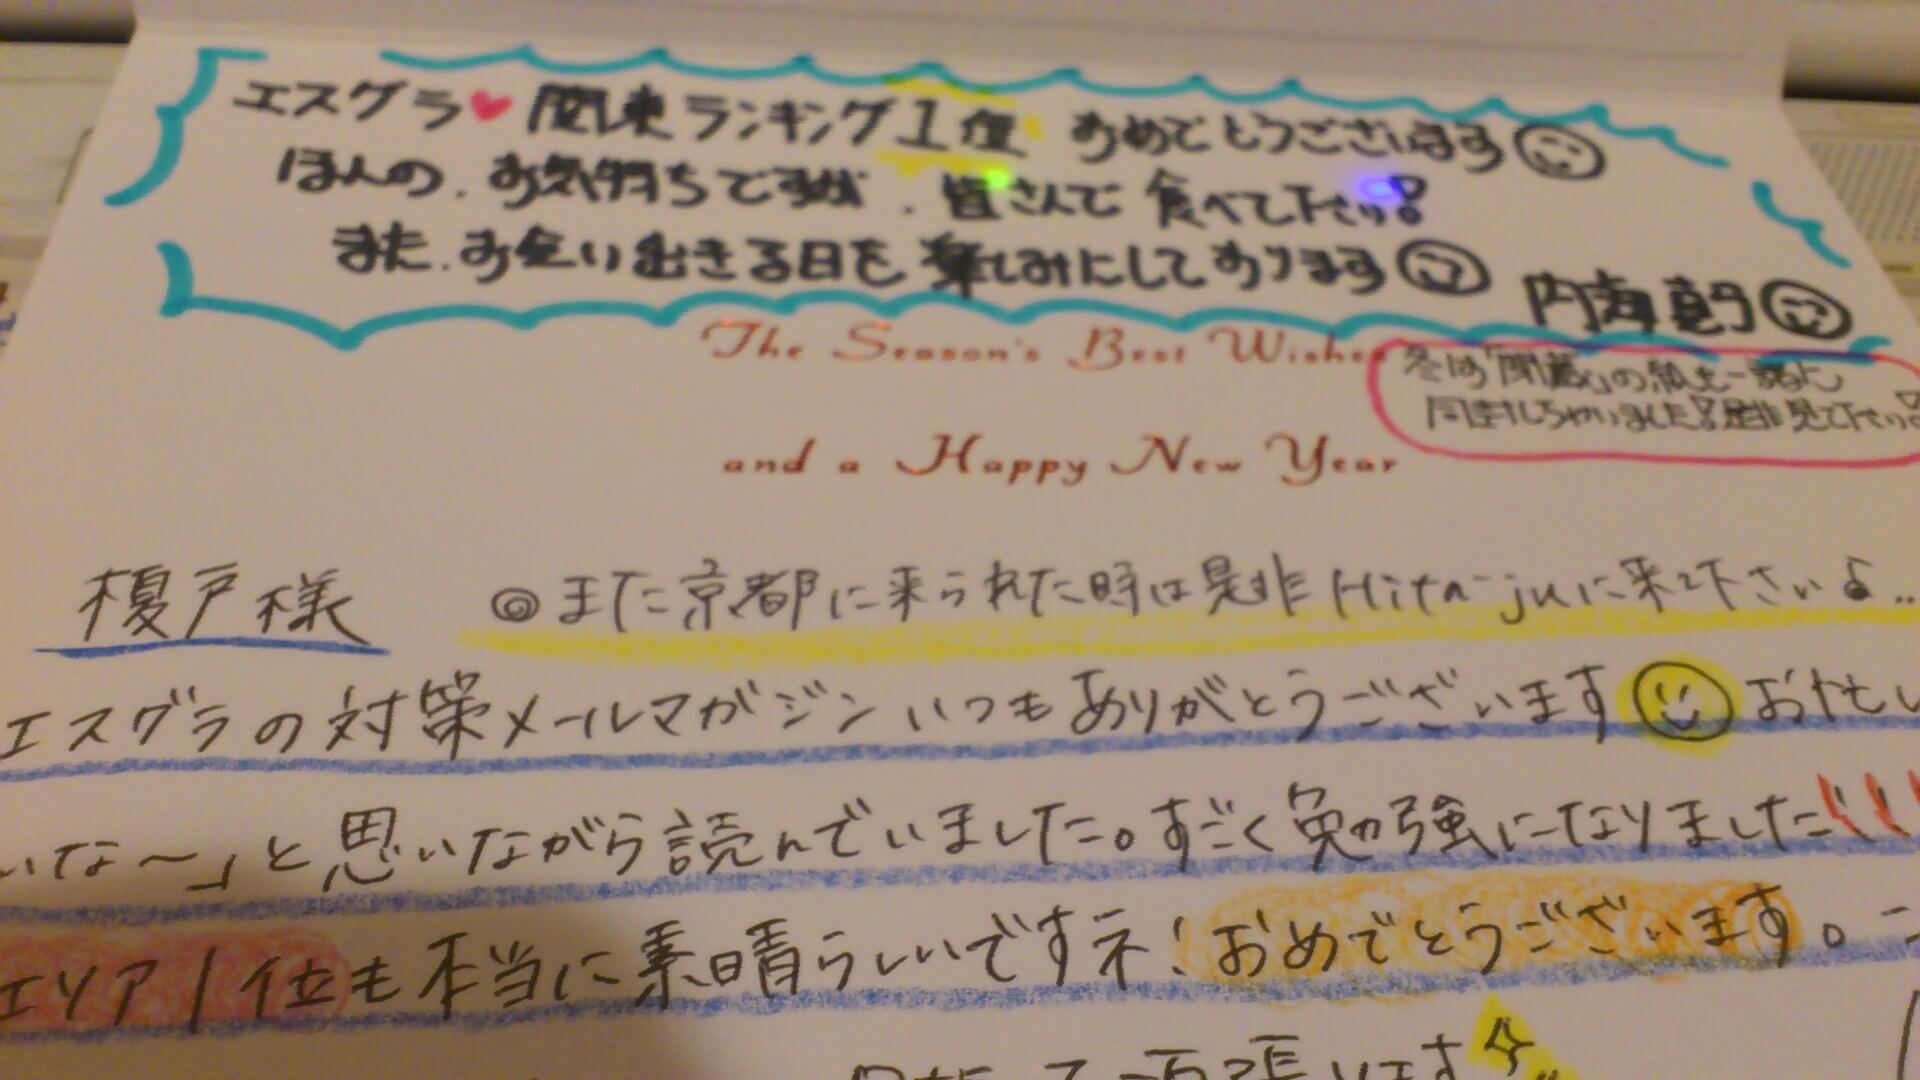 エスグラ♥関東ランキング1位 おめでとうございます
ほんの、お気持ちですが、皆さんで食べて下さい!
また、お会い出来る日を楽しみにしております
内海
The Season's Best Wishes
冬は「閉蔵」の紙も一緒に
同封しちゃいました!是非見て下さい!
and a Happy New Year
榎戸様
◎また京都に来られた時は是非Hita-juに来て下さいね..
エスグラの対策メールマガジンいつもありがとうございます
いな〜」と思いながら読んでいました。すごく勉強になりました!!!
エリア1位も本当に素晴らしいですネ!おめでとうございます。
頑張ります